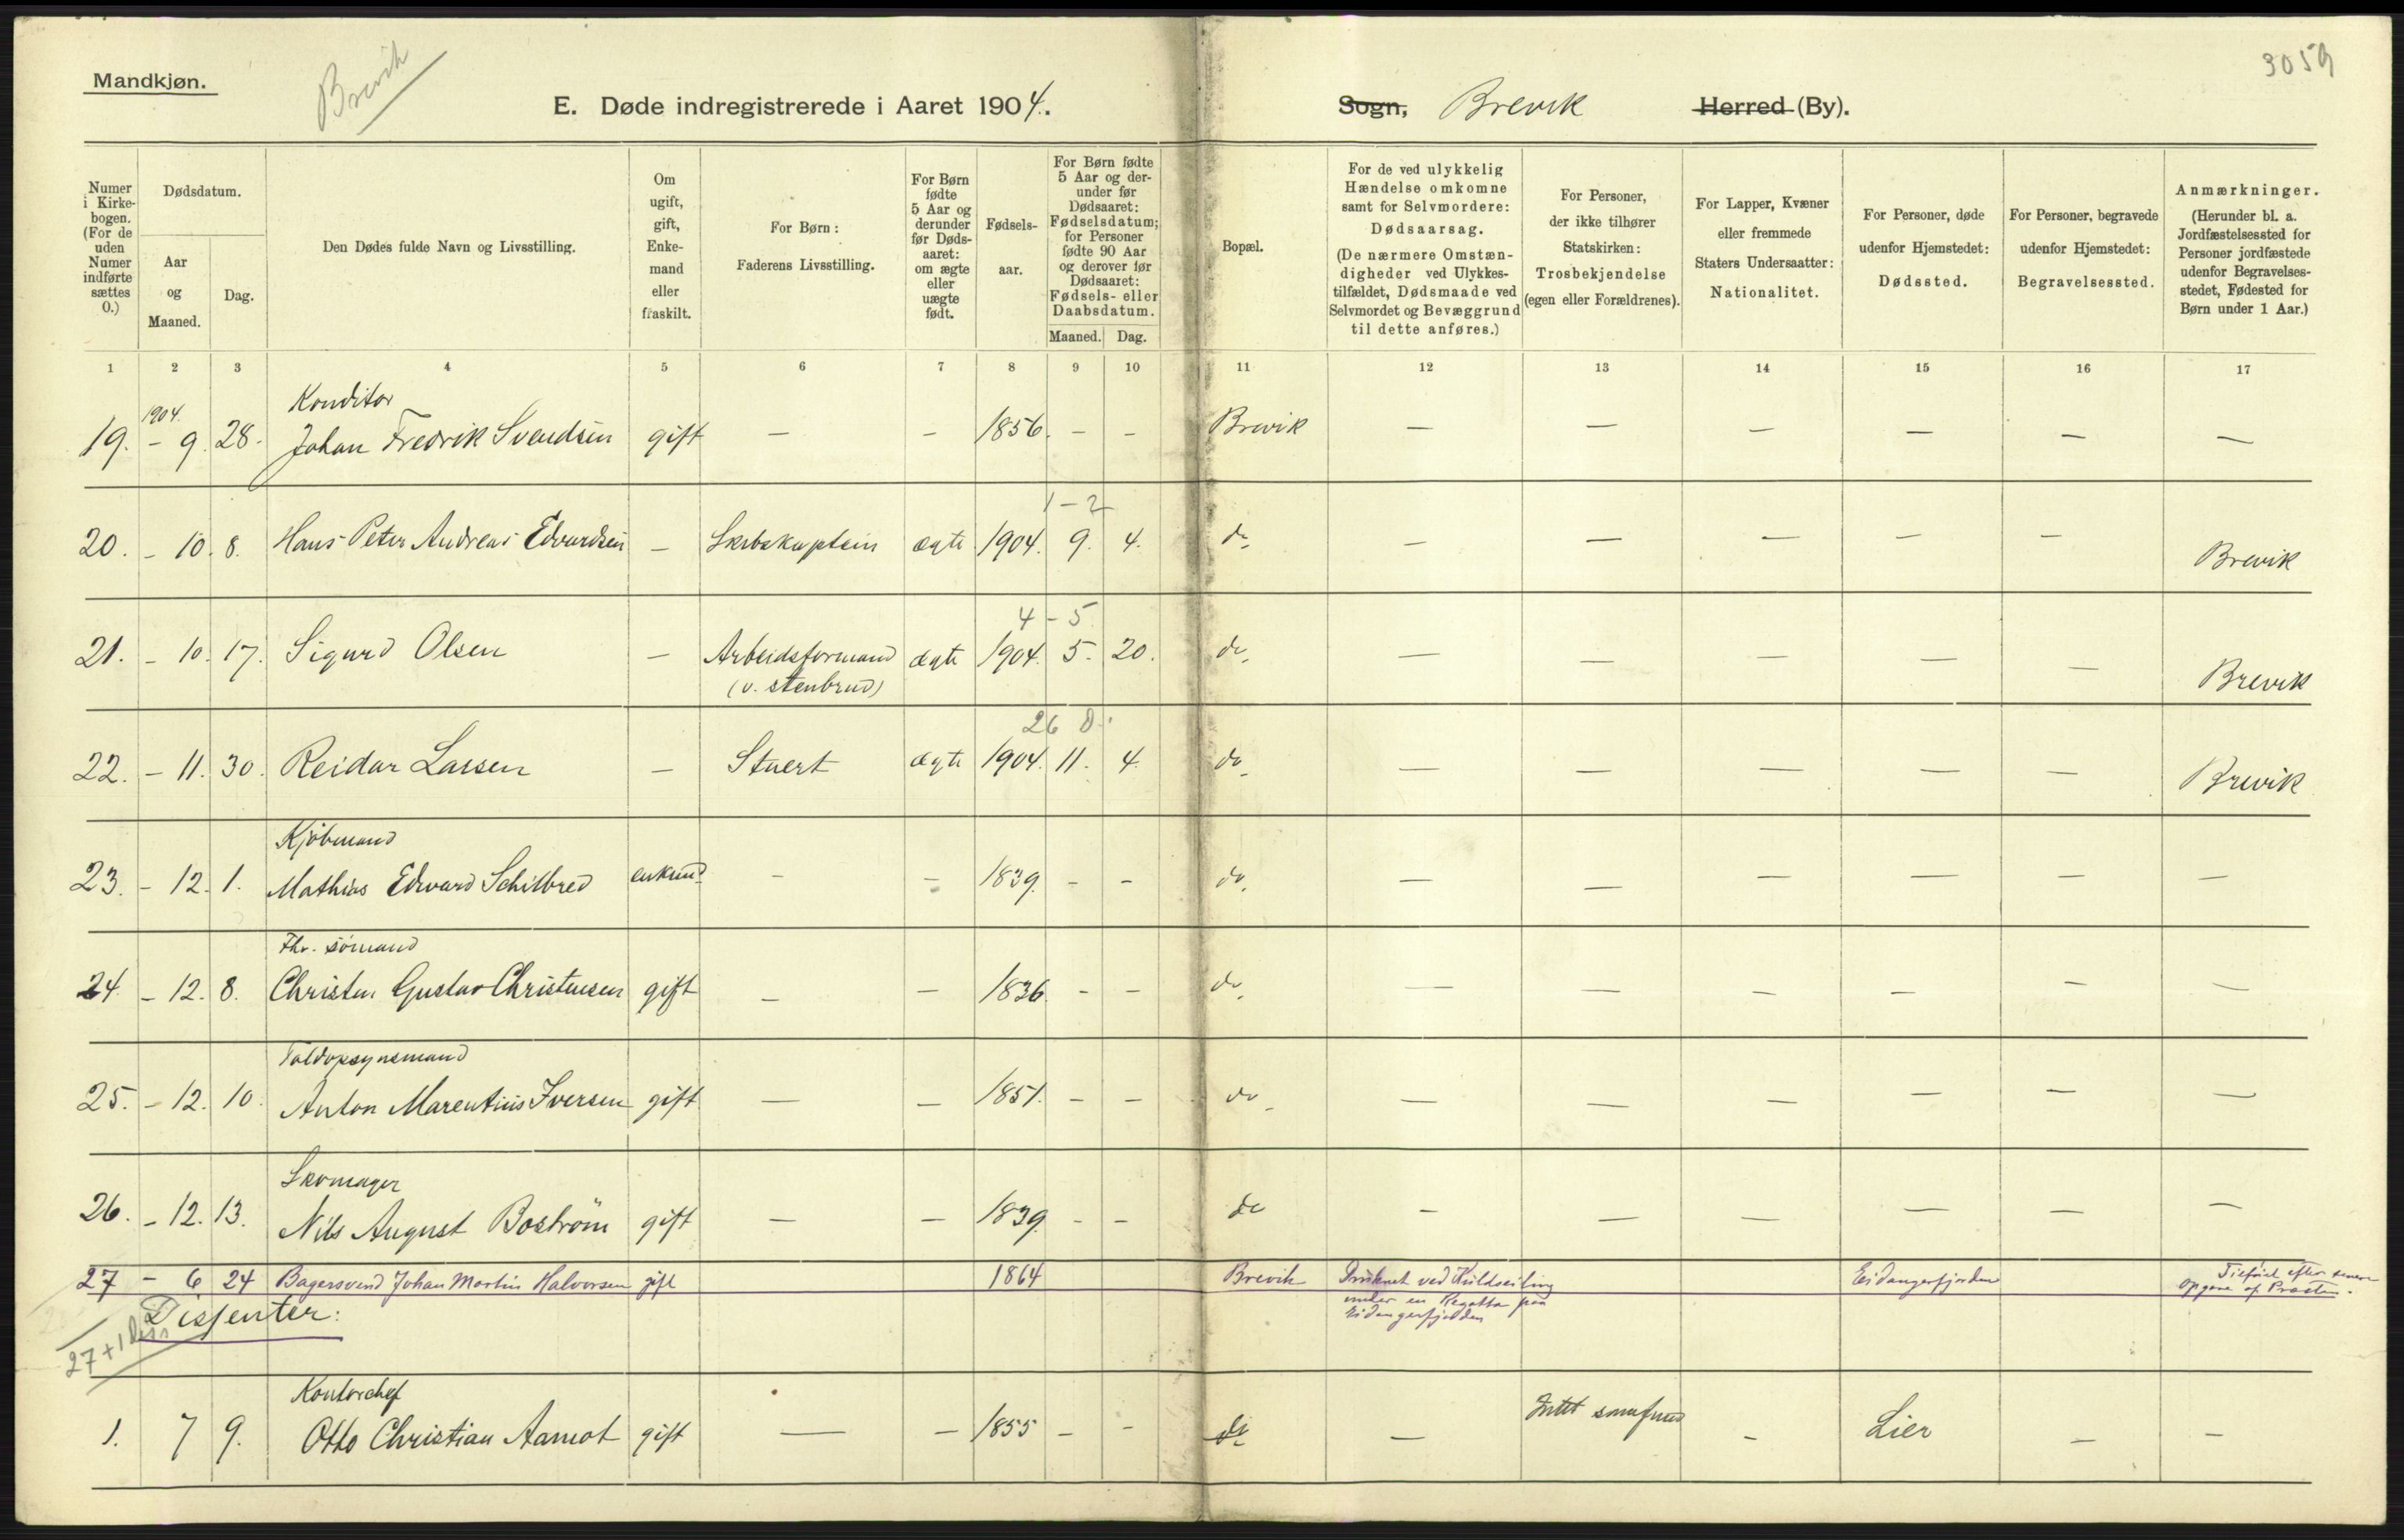 Mandkjøn.
Brevik
3059
E. Døde indregistrerede i Aaret 1904.
Sogn, Brevik Herred (By).
Numer i Kirkebogen. (For de uden Numer indførte sættes 0.)
Dødsdatum.
Aar og Maaned.
Dag.
Den Dødes fulde Navn og Livsstilling.
Om ugift, gift, Enkemand eller fraskilt.
For Børn: Faderens Livsstilling.
For Børn fødte 5 Aar og derunder før Dødsaaret: om ægte eller uægte født.
Fødselsaar.
For Børn fødte 5 Aar og derunder før Dødsaaret: Fødselsdatum; for Personer fødte 90 Aar og derover før Dødsaaret: Fødsels- eller Daabsdatum.
Maaned. Dag.
Bopæl.
For de ved ulykkelig Hændelse omkomne samt for Selvmordere: Dødsaarsag.
(De nærmere Omstændigheder ved Ulykkestilfældet, Dødsmaade ved Selvmordet og Bevæggrund til dette anføres.)
For Personer, der ikke tilhører Statskirken: Trosbekjendelse (egen eller Forældrenes).
For Lapper, Kvæner eller fremmede Staters Undersaatter: Nationalitet.
For Personer, døde udenfor Hjemstedet: Dødssted.
For Personer, begravede udenfor Hjemstedet: Begravelsessted.
Anmærkninger.
(Herunder bl. a. Jordfæstelsessted for Personer jordfæstede udenfor Begravelsesstedet, Fødested for Børn under 1 Aar.)
1 2 3 4 5 6 7 8 9 10 11 12 13 14 15 16 17
Konditor
1904
19. – 9. 28. Johan Fredrik Svendsen gift – – 1856. – – Brevik – – – – – –
1 – 2
20. – 10. 8. Hans Peter Andreas Edvardsen – Skibskaptein ægte 1904. 9. 4. do. – – – – – Brevik
4 – 5
21. – 10. 17. Sigurd Olsen – Arbeidsformand ægte 1904. 5. 20. do. – – – – – Brevik
(v. stenbrud)
26 d.
22. – 11. 30. Reidar Lassen – Stuert ægte 1904. 11. 4. do. – – – – – Brevik
Kjøbmand
23. – 12. 1. Mathias Edvard Schilbred enkmd – – 1839. – – do. – – – – – –
Fhv. sømand
24. – 12. 8. Christen Gustav Christensen gift – – 1836. – – do. – – – – – –
Toldopsynsmand
25. – 12. 10. Anton Marentius Iversen gift – – 1851. – – do. – – – – – –
Skomager
26. – 12. 13. Nils August Boström gift – – 1839. – – do – – – – – –
27 – 6 24 Bagersvend Johan Martin Halvorsen gift 1864 Brevik Druknet ved Kuldseiling Eidangerfjorden Tilføiet efter senere
under en Regatta paa opgave af Præsten.
Eidangerfjorden
Dissenter:
27 + 1 Diss
Kontorchef
1. 7 9. Otto Christian Aamot gift – – 1855 – – do – Intet samfund – Lier – –